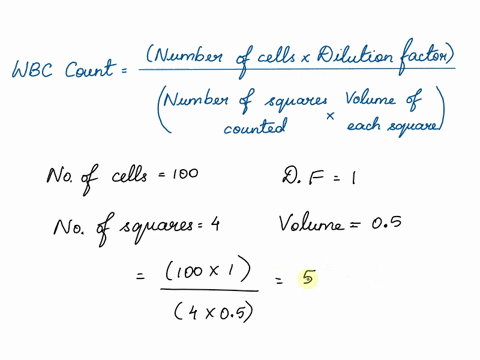 WBC Count = (Number of cells x Dilution factor)
(Number of squares counted x Volume of each square)
No. of cells = 100 D.F = 1
No. of squares = 4 Volume = 0.5
= (100 x 1) = 5
(4 x 0.5)